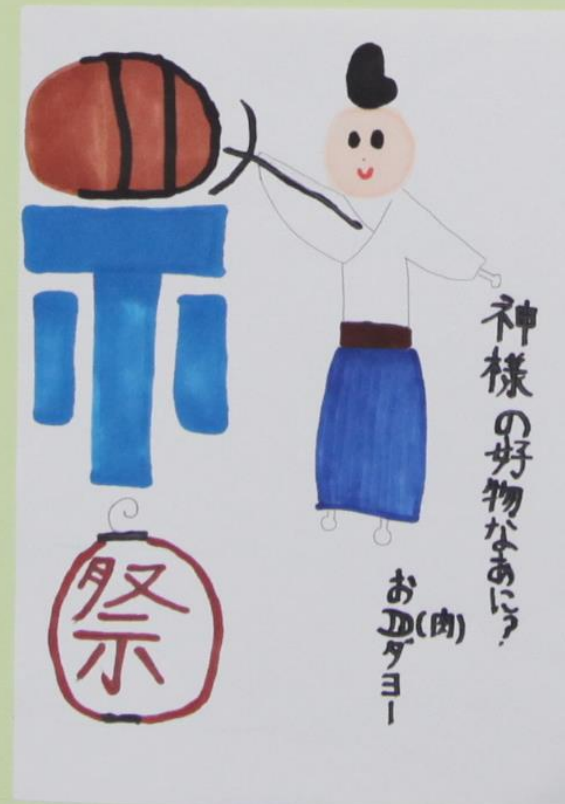 神様の好物なあに?
お(肉)ダヨー
祭